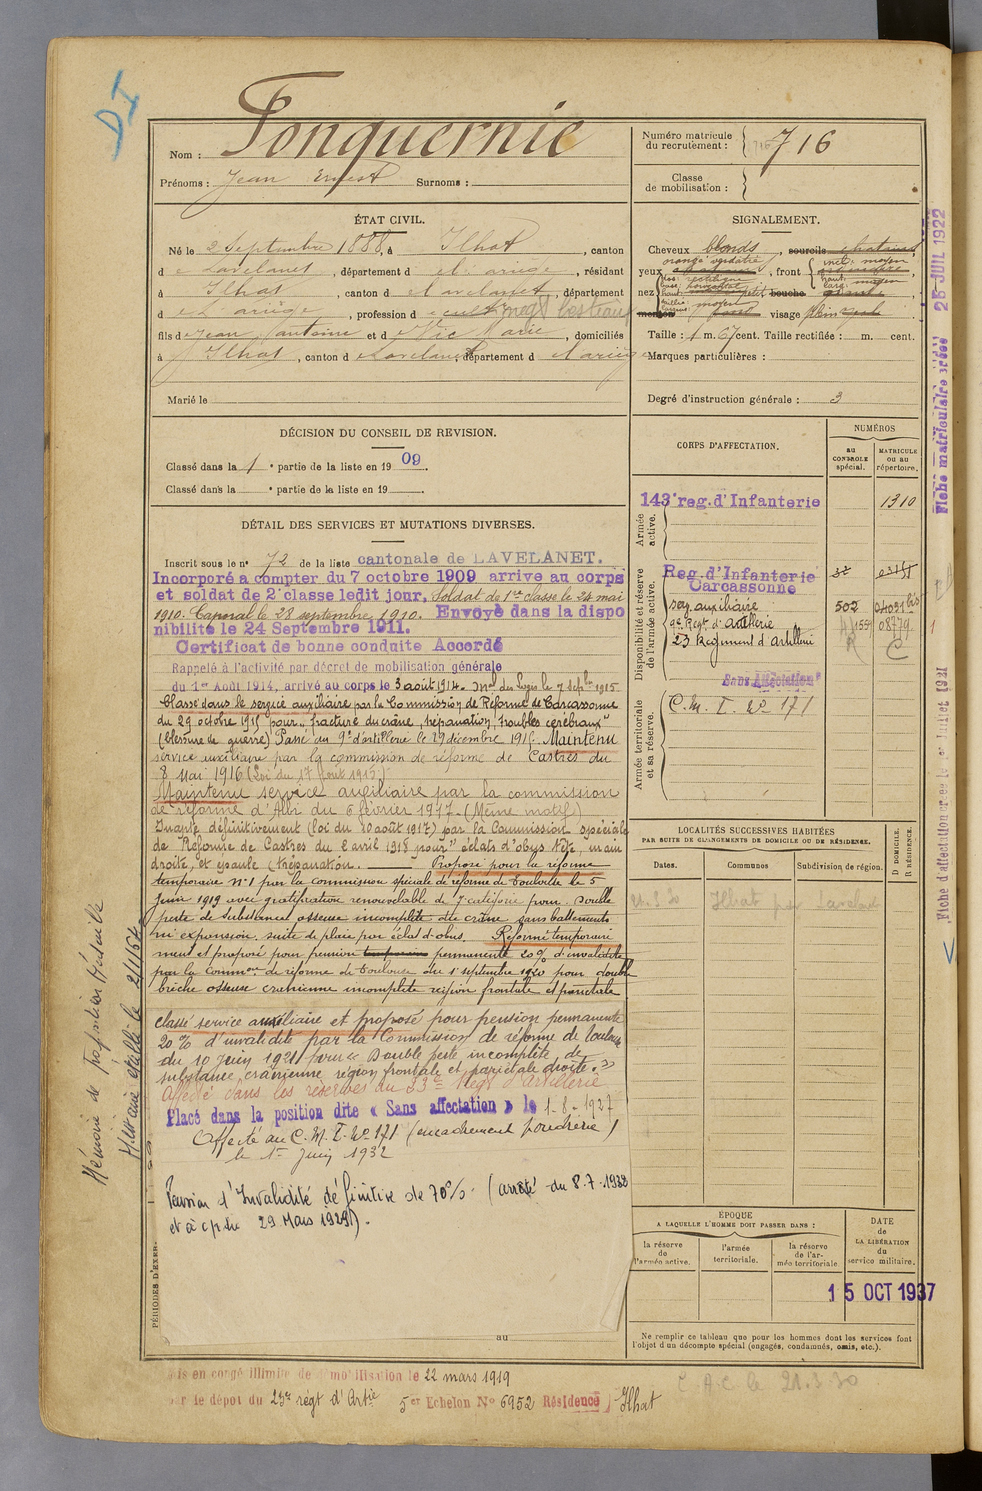 DI
Nom : Fonquernie
Prénoms : Jean Ernest Surnoms :
Numéro matricule du recrutement : 716
Classe de mobilisation :
ÉTAT CIVIL.
Né le 2 Septembre 1888, à Ilhat, canton
d e Lavelanet, département d e l'Ariège, résidant
à Ilhat, canton d e Lavelanet, département
d e l'Ariège, profession d e cult. md de bestiaux
fils d e Jean Antoine et d e Vic Marie, domiciliés
à Ilhat, canton d e Lavelanet, département d e l'Ariège
Marié le
SIGNALEMENT.
Cheveux blonds, sourcils châtains
yeux orangé verdâtre, front
nez
visage plein
Taille : 1 m. 67 cent. Taille rectifiée : m. cent.
Marques particulières :
Degré d'instruction générale : 3
DÉCISION DU CONSEIL DE REVISION.
Classé dans la 1e partie de la liste en 1909.
Classé dans la e partie de la liste en 19 .
CORPS D'AFFECTATION.
NUMÉROS
AU CONTROLE spécial.
MATRICULE ou au répertoire.
Armée active.
143e reg. d'Infanterie 1310
Disponibilité et réserve de l'armée active.
Reg. d'Infanterie
Carcassonne
son auxiliaire 502 04031 bis
9e Régt d'Artillerie 1559 08779
23 Régiment d'artillerie R C
"Sans Affectation"
Armée territoriale et sa réserve.
C. M. I. No 171
DÉTAIL DES SERVICES ET MUTATIONS DIVERSES.
Inscrit sous le no 72 de la liste cantonale de LAVELANET.
Incorporé a compter du 7 octobre 1909 arrive au corps
et soldat de 2e classe ledit jour. Soldat de 1re classe le 24 mai
1910. Caporal le 28 septembre 1910. Envoyé dans la dispo
nibilité le 24 Septembre 1911.
Certificat de bonne conduite Accordé
Rappelé à l'activité par décret de mobilisation générale
du 1er Août 1914, arrivé au corps le 3 août 1914. Mal des Logis le 7 Sepbre 1915
Classé dans le service auxiliaire par la Commission de Réforme de Carcassonne
du 29 octobre 1915 pour "fracture du crâne, trépanation, troubles cérébraux"
(blessure de guerre) Passé au 9e d'artillerie le 29 décembre 1915. Maintenu
service auxiliaire par la commission de réforme de Castres du
8 Mai 1916 (Loi du 17 Aout 1915)
Maintenu service auxiliaire par la commission
de réforme d'Albi du 6 février 1917 (Même motif)
Inapte définitivement (loi du 10 août 1917) par la Commission spéciale
de Réforme de Castres du 2 avril 1918 pour "éclats d'obus tête, main
droite, et épaule (trépanation. Proposé pour la réforme
temporaire no 1 par la commission spéciale de réforme de Toulouse le 5
Juin 1919 avec gratification renouvelable de 7e catégorie pour. Double
perte de substance osseuse incomplète du crâne sans battements
ni expansion, suite de plaie par éclat d'obus. Réformé temporaire
ment et proposé pour pension temporaire permanente 20% d'invalidité
par la Common de réforme de Toulouse du 1er septembre 1920 pour double
brèche osseuse cranienne incomplète région frontale et pariétale
classé service auxiliaire et proposé pour pension permanente
20% d'invalidité par la Commission de réforme de Toulouse
du 10 Juin 1921 pour "Double perte incomplète de
substance crânienne région frontale et pariétale droite."
Affecté dans les réserves du 23e Régt d'Artillerie
Placé dans la position dite « Sans affectation » le 1-8-1927
Affecté au C. M. I. No 171 (encadrement poudrerie)
le 1er Juin 1932
Pension d'Invalidité définitive de 70% (arrêté du 8.7.1932
et à cp du 29 Mars 1929).
PÉRIODES D'EXER-
au
LOCALITÉS SUCCESSIVES HABITÉES
PAR SUITE DE CHANGEMENTS DE DOMICILE OU DE RÉSIDENCE.
Dates.
Communes
Subdivision de région.
D DOMICILE. R RÉSIDENCE.
21.3.30 Ilhat par Lavelanet
ÉPOQUE
A LAQUELLE L'HOMME DOIT PASSER DANS :
la réserve de l'armée active.
l'armée territoriale.
la réserve de l'armée territoriale
DATE de LA LIBÉRATION du service militaire.
15 OCT 1937
Ne remplir ce tableau que pour les hommes dont les services font
l'objet d'un décompte spécial (engagés, condamnés, omis, etc.).
is en congé illimité de mobilisation le 22 mars 1919
le dépôt du 23e régt d'Artie 5er Echelon No 6952 Résidence Ilhat
C.A.C. le 21.3.30
Mémoire de proposition Médaille
Militaire établi le 2/1/52
Fiche matriculaire créée 25 JUIL 1922
Fiche d'affectation créée le 1er Juillet 1921